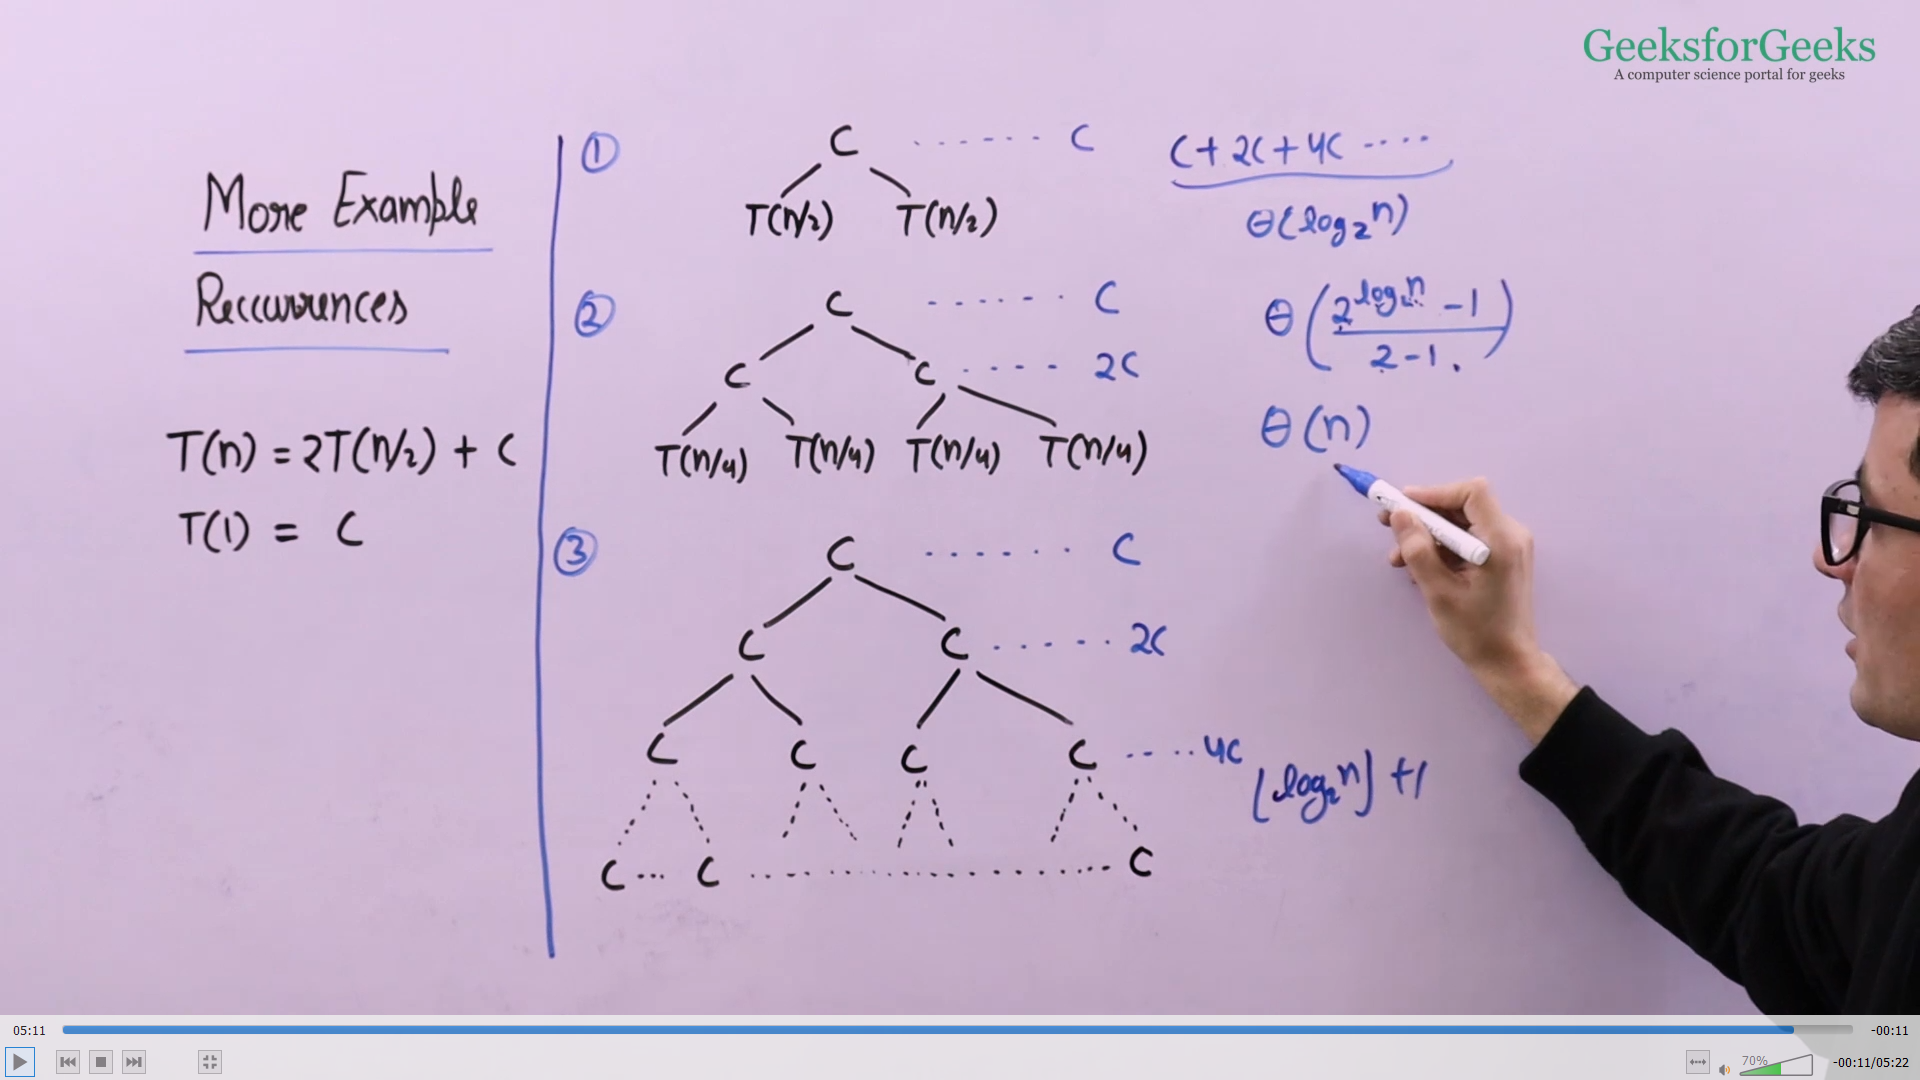 GeeksforGeeks
A computer science portal for geeks
More Example
Reccurrences
T(n) = 2T(n/2) + C
T(1) = C
①
C ...... C
T(n/2) T(n/2)
②
C ...... C
C C .... 2C
T(n/4) T(n/4) T(n/4) T(n/4)
③
C ...... C
C C ..... 2C
C C C C .... 4C
⌊log₂n⌋ +1
C ... C ............ C
C + 2C + 4C .....
θ(log₂n)
θ(2^log₂n - 1 / 2 - 1)
θ(n)
05:11
-00:11
70%
-00:11/05:22